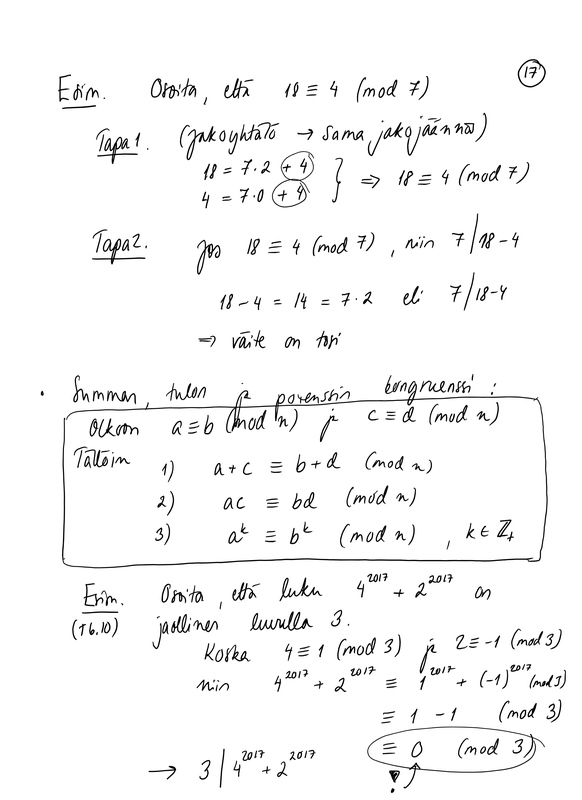 17
Esim. Osoita, että 18 ≡ 4 (mod 7)
Tapa 1. (Jakoyhtälö → sama jakojäännös)
18 = 7·2 + 4
4 = 7·0 + 4 } ⇒ 18 ≡ 4 (mod 7)
Tapa 2. Jos 18 ≡ 4 (mod 7), niin 7 | 18-4
18-4 = 14 = 7·2 eli 7 | 18-4
⇒ väite on tosi
• Summan, tulon ja potenssin kongruenssi:
Olkoon a ≡ b (mod n) ja c ≡ d (mod n)
Tällöin 1) a+c ≡ b+d (mod n)
2) ac ≡ bd (mod n)
3) aᵏ ≡ bᵏ (mod n), k ∈ ℤ₊
Esim. Osoita, että luku 4²⁰¹⁷ + 2²⁰¹⁷ on
(T6.10) jaollinen luvulla 3.
Koska 4 ≡ 1 (mod 3) ja 2 ≡ -1 (mod 3)
niin 4²⁰¹⁷ + 2²⁰¹⁷ ≡ 1²⁰¹⁷ + (-1)²⁰¹⁷ (mod 3)
≡ 1 - 1 (mod 3)
≡ 0 (mod 3)
→ 3 | 4²⁰¹⁷ + 2²⁰¹⁷ !